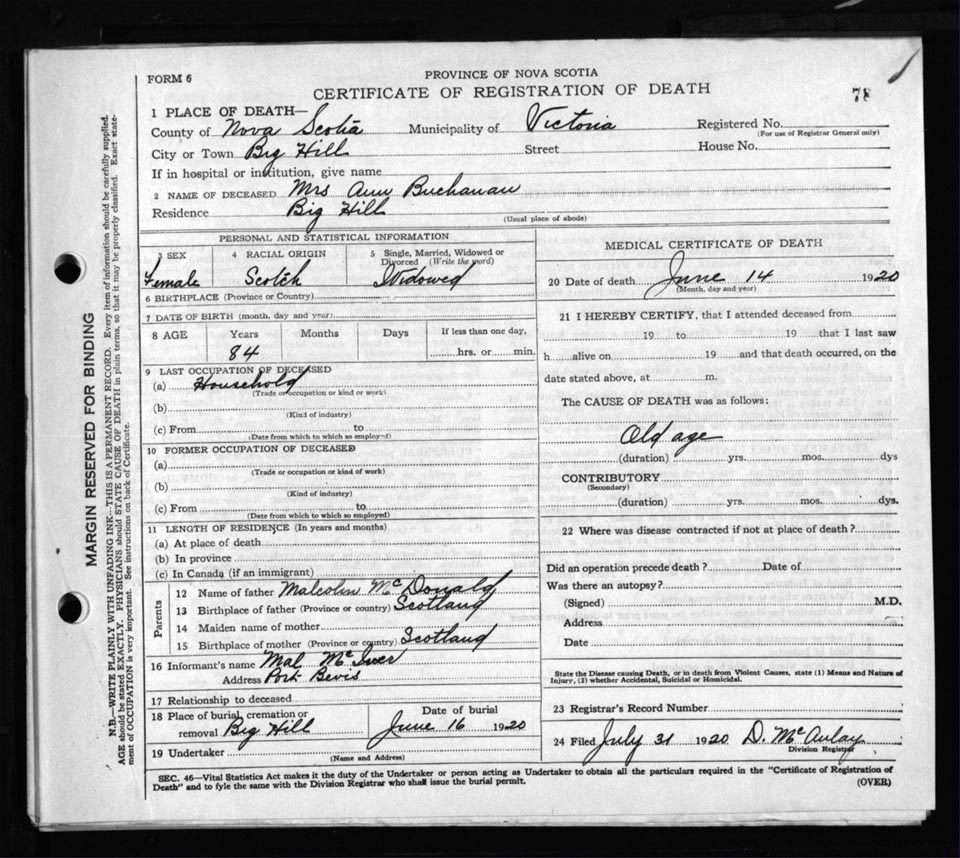 FORM 6
PROVINCE OF NOVA SCOTIA
CERTIFICATE OF REGISTRATION OF DEATH
78
1 PLACE OF DEATH—
County of Nova Scotia Municipality of Victoria Registered No.
(For use of Registrar General only)
City or Town Big Hill Street House No.
If in hospital or institution, give name
2 NAME OF DECEASED Mrs Ann Buchanan
Residence Big Hill
(Usual place of abode)
PERSONAL AND STATISTICAL INFORMATION
3 SEX 4 RACIAL ORIGIN 5 Single, Married, Widowed or
Divorced (Write the word)
Female Scotch Widowed
6 BIRTHPLACE (Province or Country)
7 DATE OF BIRTH (month, day and year)
8 AGE Years Months Days If less than one day,
84 hrs. or min.
9 LAST OCCUPATION OF DECEASED
(a) Household
(Trade or occupation or kind or work)
(b)
(Kind of industry)
(c) From to
(Date from which to which so employed)
10 FORMER OCCUPATION OF DECEASED
(a)
(Trade or occupation or kind of work)
(b)
(Kind of industry)
(c) From to
(Date from which to which so employed)
11 LENGTH OF RESIDENCE (In years and months)
(a) At place of death
(b) In province
(c) In Canada (if an immigrant)
Parents
12 Name of father Malcolm McDonald
13 Birthplace of father (Province or country) Scotland
14 Maiden name of mother
15 Birthplace of mother (Province or country) Scotland
16 Informant's name Mal McIver
Address Port Bevis
17 Relationship to deceased
18 Place of burial, cremation or Date of burial
removal Big Hill June 16 1920
19 Undertaker
(Name and Address)
MEDICAL CERTIFICATE OF DEATH
20 Date of death June 14 1920
(Month, day and year)
21 I HEREBY CERTIFY, that I attended deceased from
19 to 19 that I last saw
h alive on 19 and that death occurred, on the
date stated above, at m.
The CAUSE OF DEATH was as follows:
Old age
(duration) yrs. mos. dys
CONTRIBUTORY
(Secondary)
(duration) yrs. mos. dys.
22 Where was disease contracted if not at place of death?
Did an operation precede death? Date of
Was there an autopsy?
(Signed) M.D.
Address
Date
State the Disease causing Death, or in death from Violent Causes, state (1) Means and Nature of
Injury, (2) whether Accidental, Suicidal or Homicidal.
23 Registrar's Record Number
24 Filed July 31 1920 D. McAulay
Division Registrar
SEC. 46—Vital Statistics Act makes it the duty of the Undertaker or person acting as Undertaker to obtain all the particulars required in the "Certificate of Registration of
Death" and to fyle the same with the Division Registrar who shall issue the burial permit.
(OVER)
MARGIN RESERVED FOR BINDING
N.B.—WRITE PLAINLY WITH UNFADING INK—THIS IS A PERMANENT RECORD. Every item of information should be carefully supplied.
AGE should be stated EXACTLY. PHYSICIANS should STATE CAUSE OF DEATH in plain terms, so that it may be properly classified. Exact state-
ment of OCCUPATION is very important. See instructions on back of Certificate.